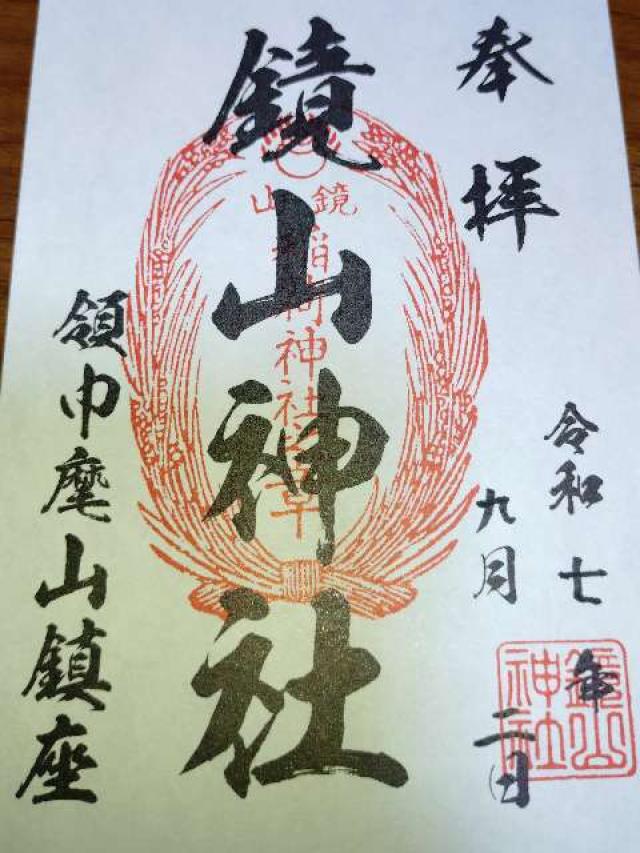 奉拝
令和七年
九月二日
鏡山神社
鏡山
稲荷神社
領巾麾山鎮座
鏡山
神社